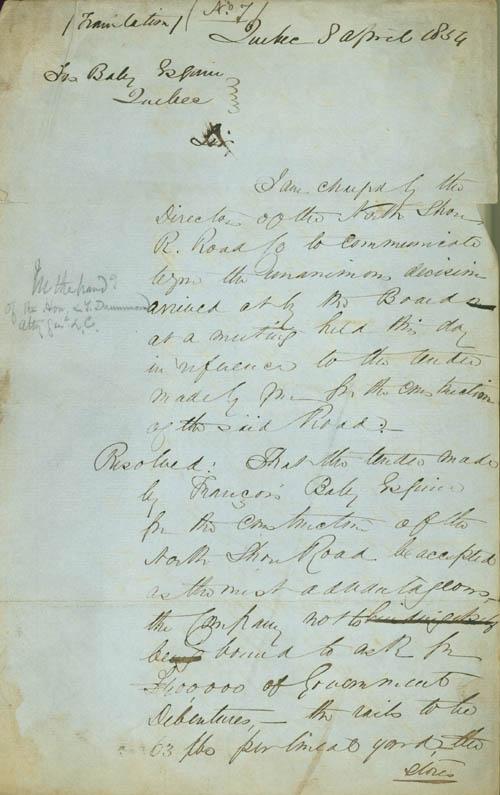 (Translation) (No 7)
Quebec 8 April 1854
Frs Baby Esquire
Quebec
Sir
I am charged by the
Directors of the North Shore
R. Road Co to communicate
to you the unanimous decision
arrived at by the Board
at a meeting held this day
in reference to the tender
made by you for the construction
of the said Road:—
In the hand?
of the Hon. L. T. Drummond
Atty Genl L.C.
Resolved: That the tender made
by François Baby Esquire
for the construction of the
North Shore Road be accepted
as the most advantageous —
the Company not
being bound to ask for
of Government
Debentures, — the rails to be
63 lbs per lineal yard, the
stores